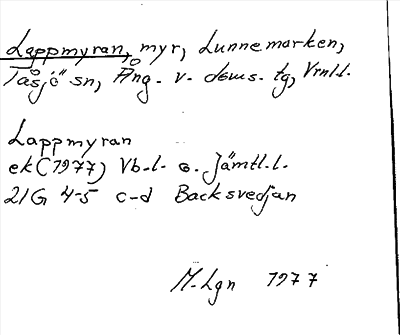 Lappmyran, myr, Lunnemarken,
Tåsjö sn, Ång. v. doms. tg, Vrnl.l.
Lappmyran
ek (1977) Vb.l. o. Jämtl.l.
21G 4-5 c-d Backsvedjan
M. Lgn 1977